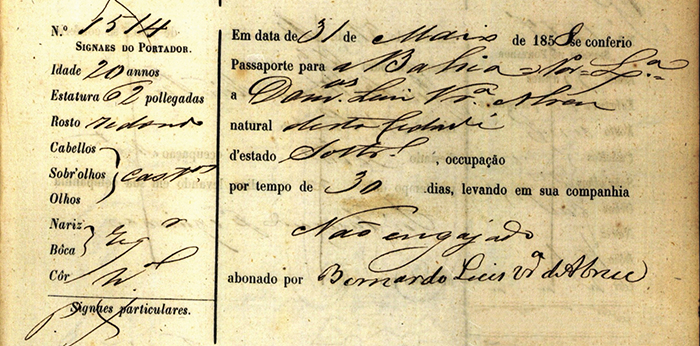 N.º 1514
SIGNAES DO PORTADOR.
Idade 20 annos
Estatura 62 pollegadas
Rosto redondo
Cabellos
Sobr'olhos } Cast.os
Olhos
Nariz
Bôca } reg.r
Côr N.l
Signaes particulares.
Em data de 31 de Maio de 1858 se conferio
Passaporte para a Bahia
a Dom.os Luis Vr.ª Abreu
natural desta Cidade
d'estado Soltr.º, occupação
por tempo de 30 dias, levando em sua companhia
Não engajado
abonado por Bernardo Luis Vr.ª d'Abreu